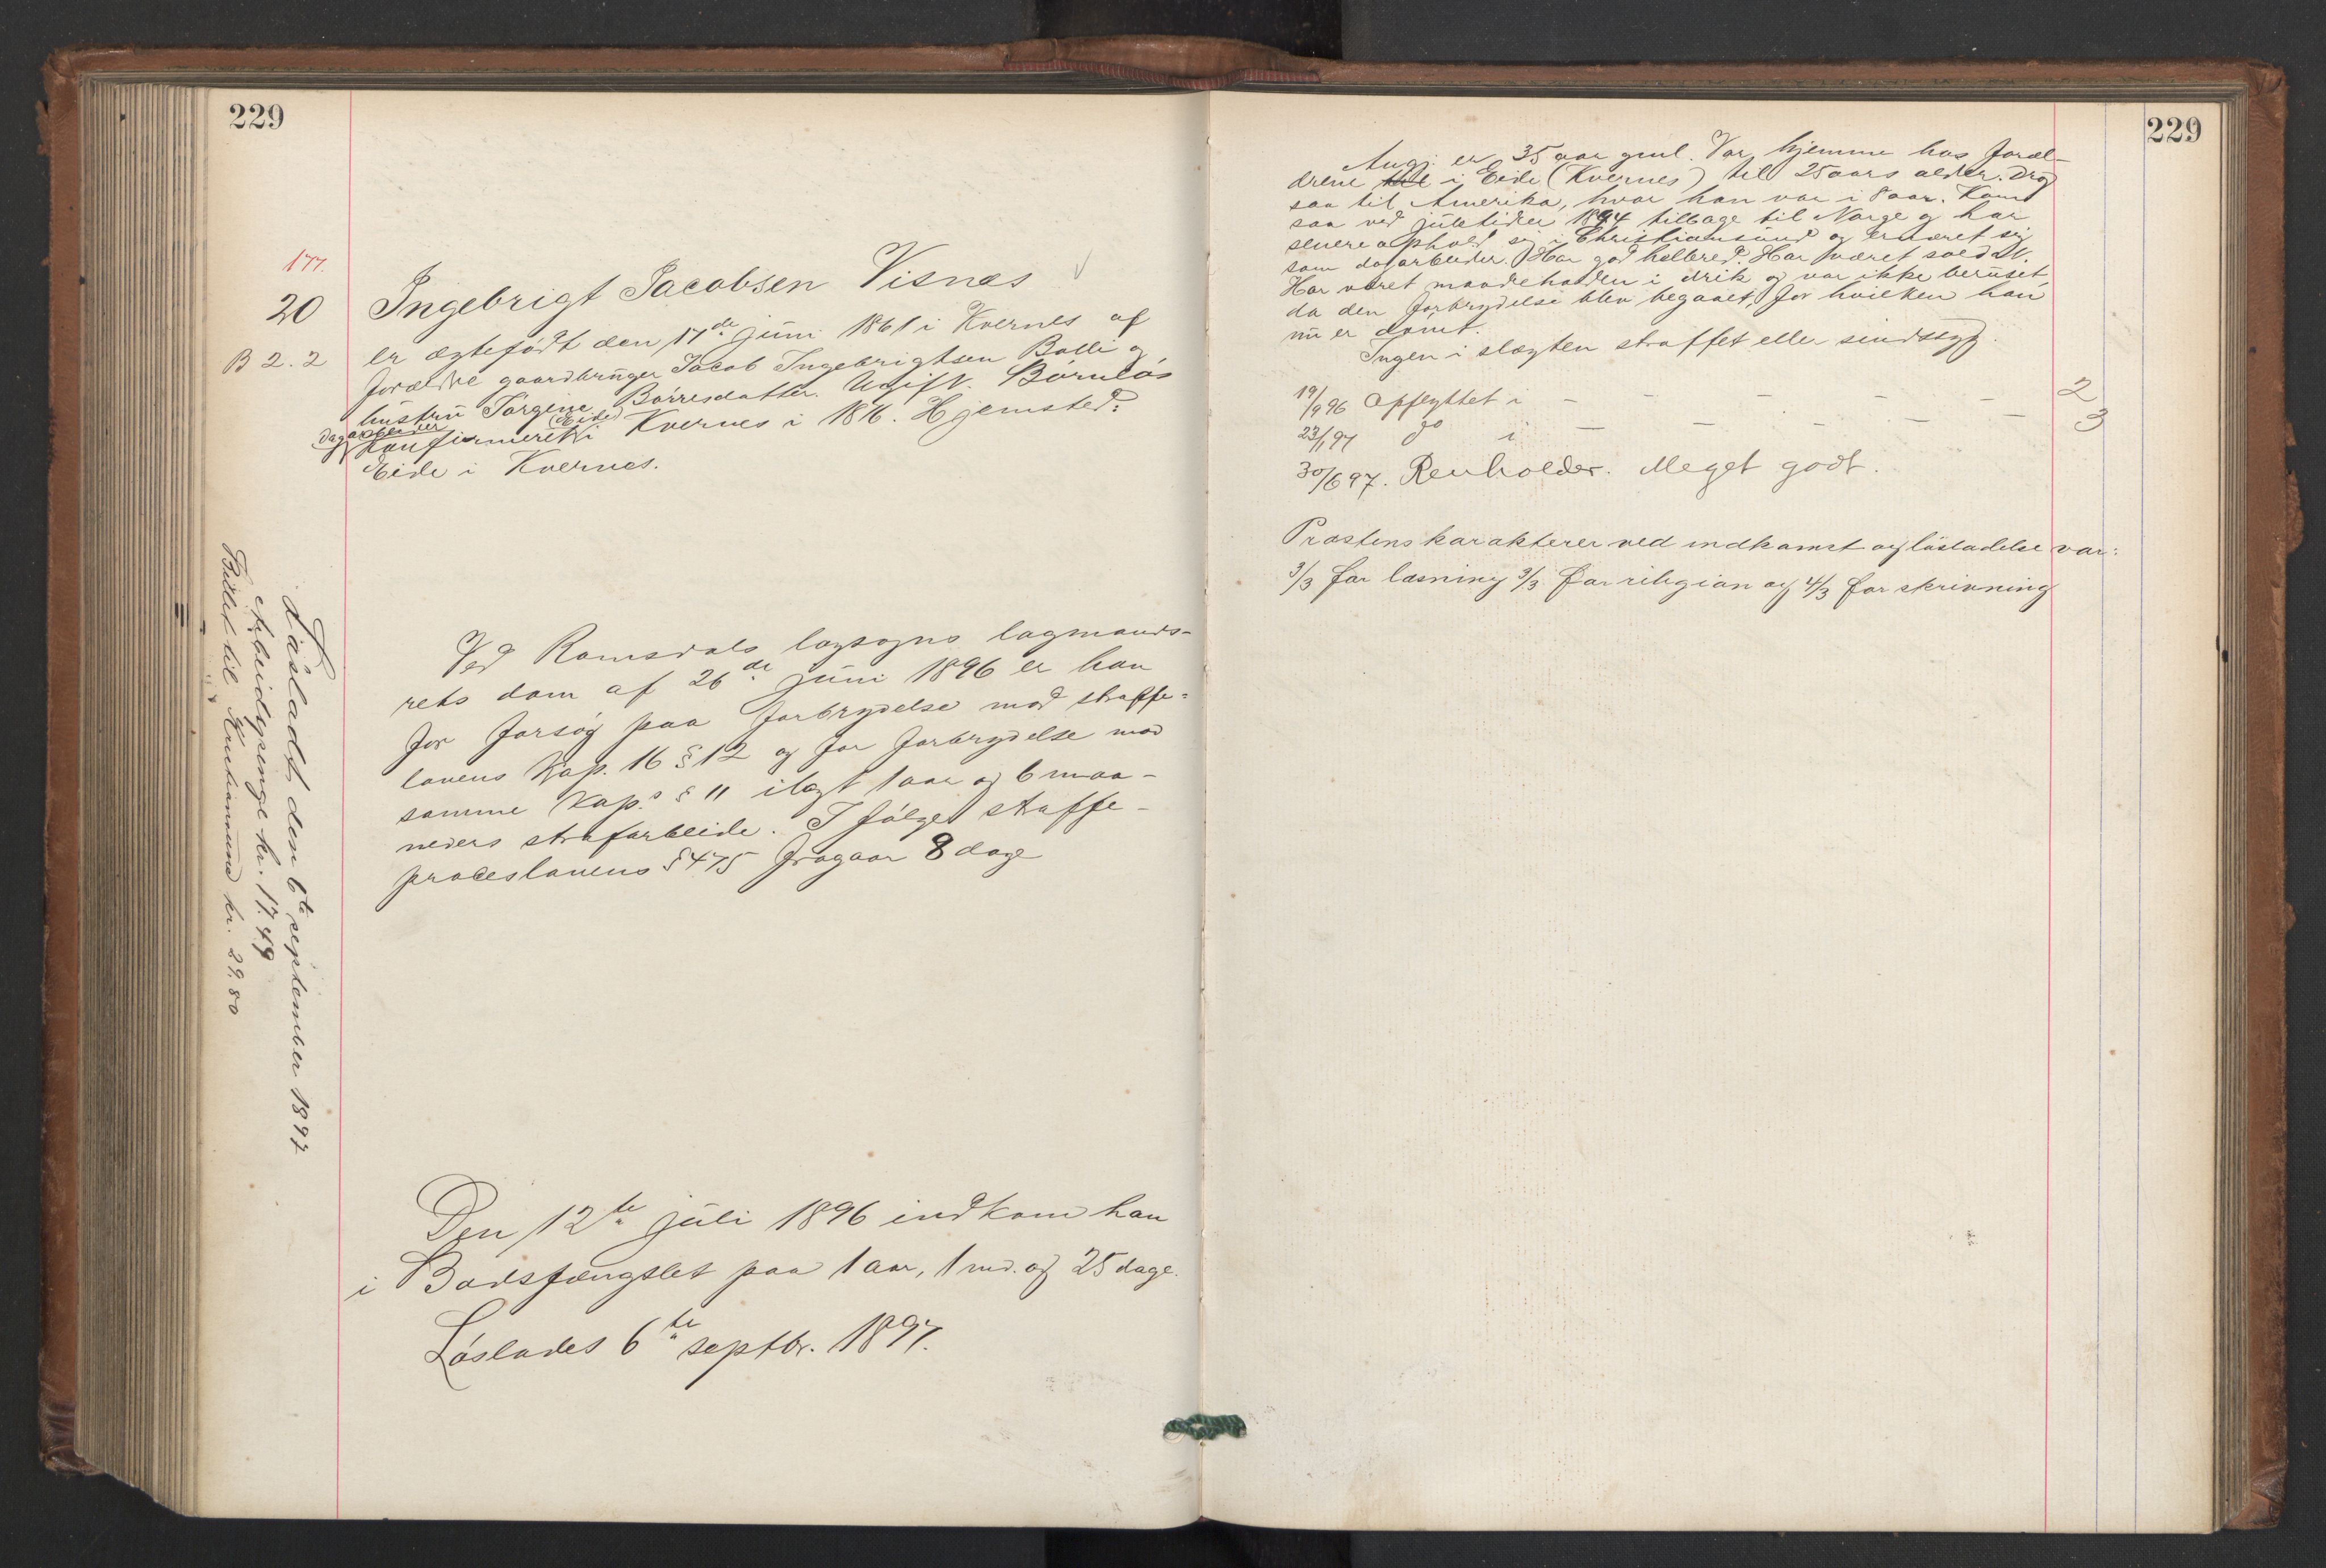 229
177.
20
B 2. 2
Ingebrigt Jacobsen Visnæs
er ægtefødt den 17de juni 1861 i Kvernes af
forældre gaardbruger Jacob Ingebrigtsen Bolli og
hustru Jørgine Børresdatter. Ugift. Børnløs
dagarbeider
(Eide)
Konfirmeret i Kvernes i 1876. Hjemsted:
Eide i Kvernes.
Ved Romsdals lagsogns lagmands-
rets dom af 26de juni 1896 er han
for forsøg paa forbrydelse mod straffe-
lovens Kap. 16 § 12 og for forbrydelse mod
samme Kap.s § 11 ilagt 1 aar og 6 maa-
neders strafarbeide. I følge straffe-
proceslovens § 475 fragaar 8 dage
Den 12te juli 1896 indkom han
i Bodsfængslet paa 1 aar, 1 md. og 25 dage.
Løslades 6te septbr. 1897.
Løsladt den 6te september 1897
Arbeidspenge kr. 17.49
Billet til Kristiansund kr. 29.80
229
Angj. er 35 aar gml. Var hjemme hos foræl-
drene i Eide (Kvernes) til 25 aars alder. Drog
saa til Amerika, hvor han var i 8 aar. Kom
saa ved juletider 1894 tilbage til Norge og har
senere opholdt sig i Christiansund og ernæret sig
som dagarbeider. Har god helbred. Har været soldat.
Har været maadeholden i drik og var ikke beruset,
da den forbrydelse blev begaaet, for hvilken han
nu er dømt.
Ingen i slægten straffet eller sindssyg.
19/9 96 Opflyttet i — — — — 2
23/1 97 do i — — — — — 3
30/6 97. Renholder. Meget godt.
Præstens karakterer ved indkomst og løsladelse var:
3/3 for læsning 3/3 for religion og 4/3 for skrivning